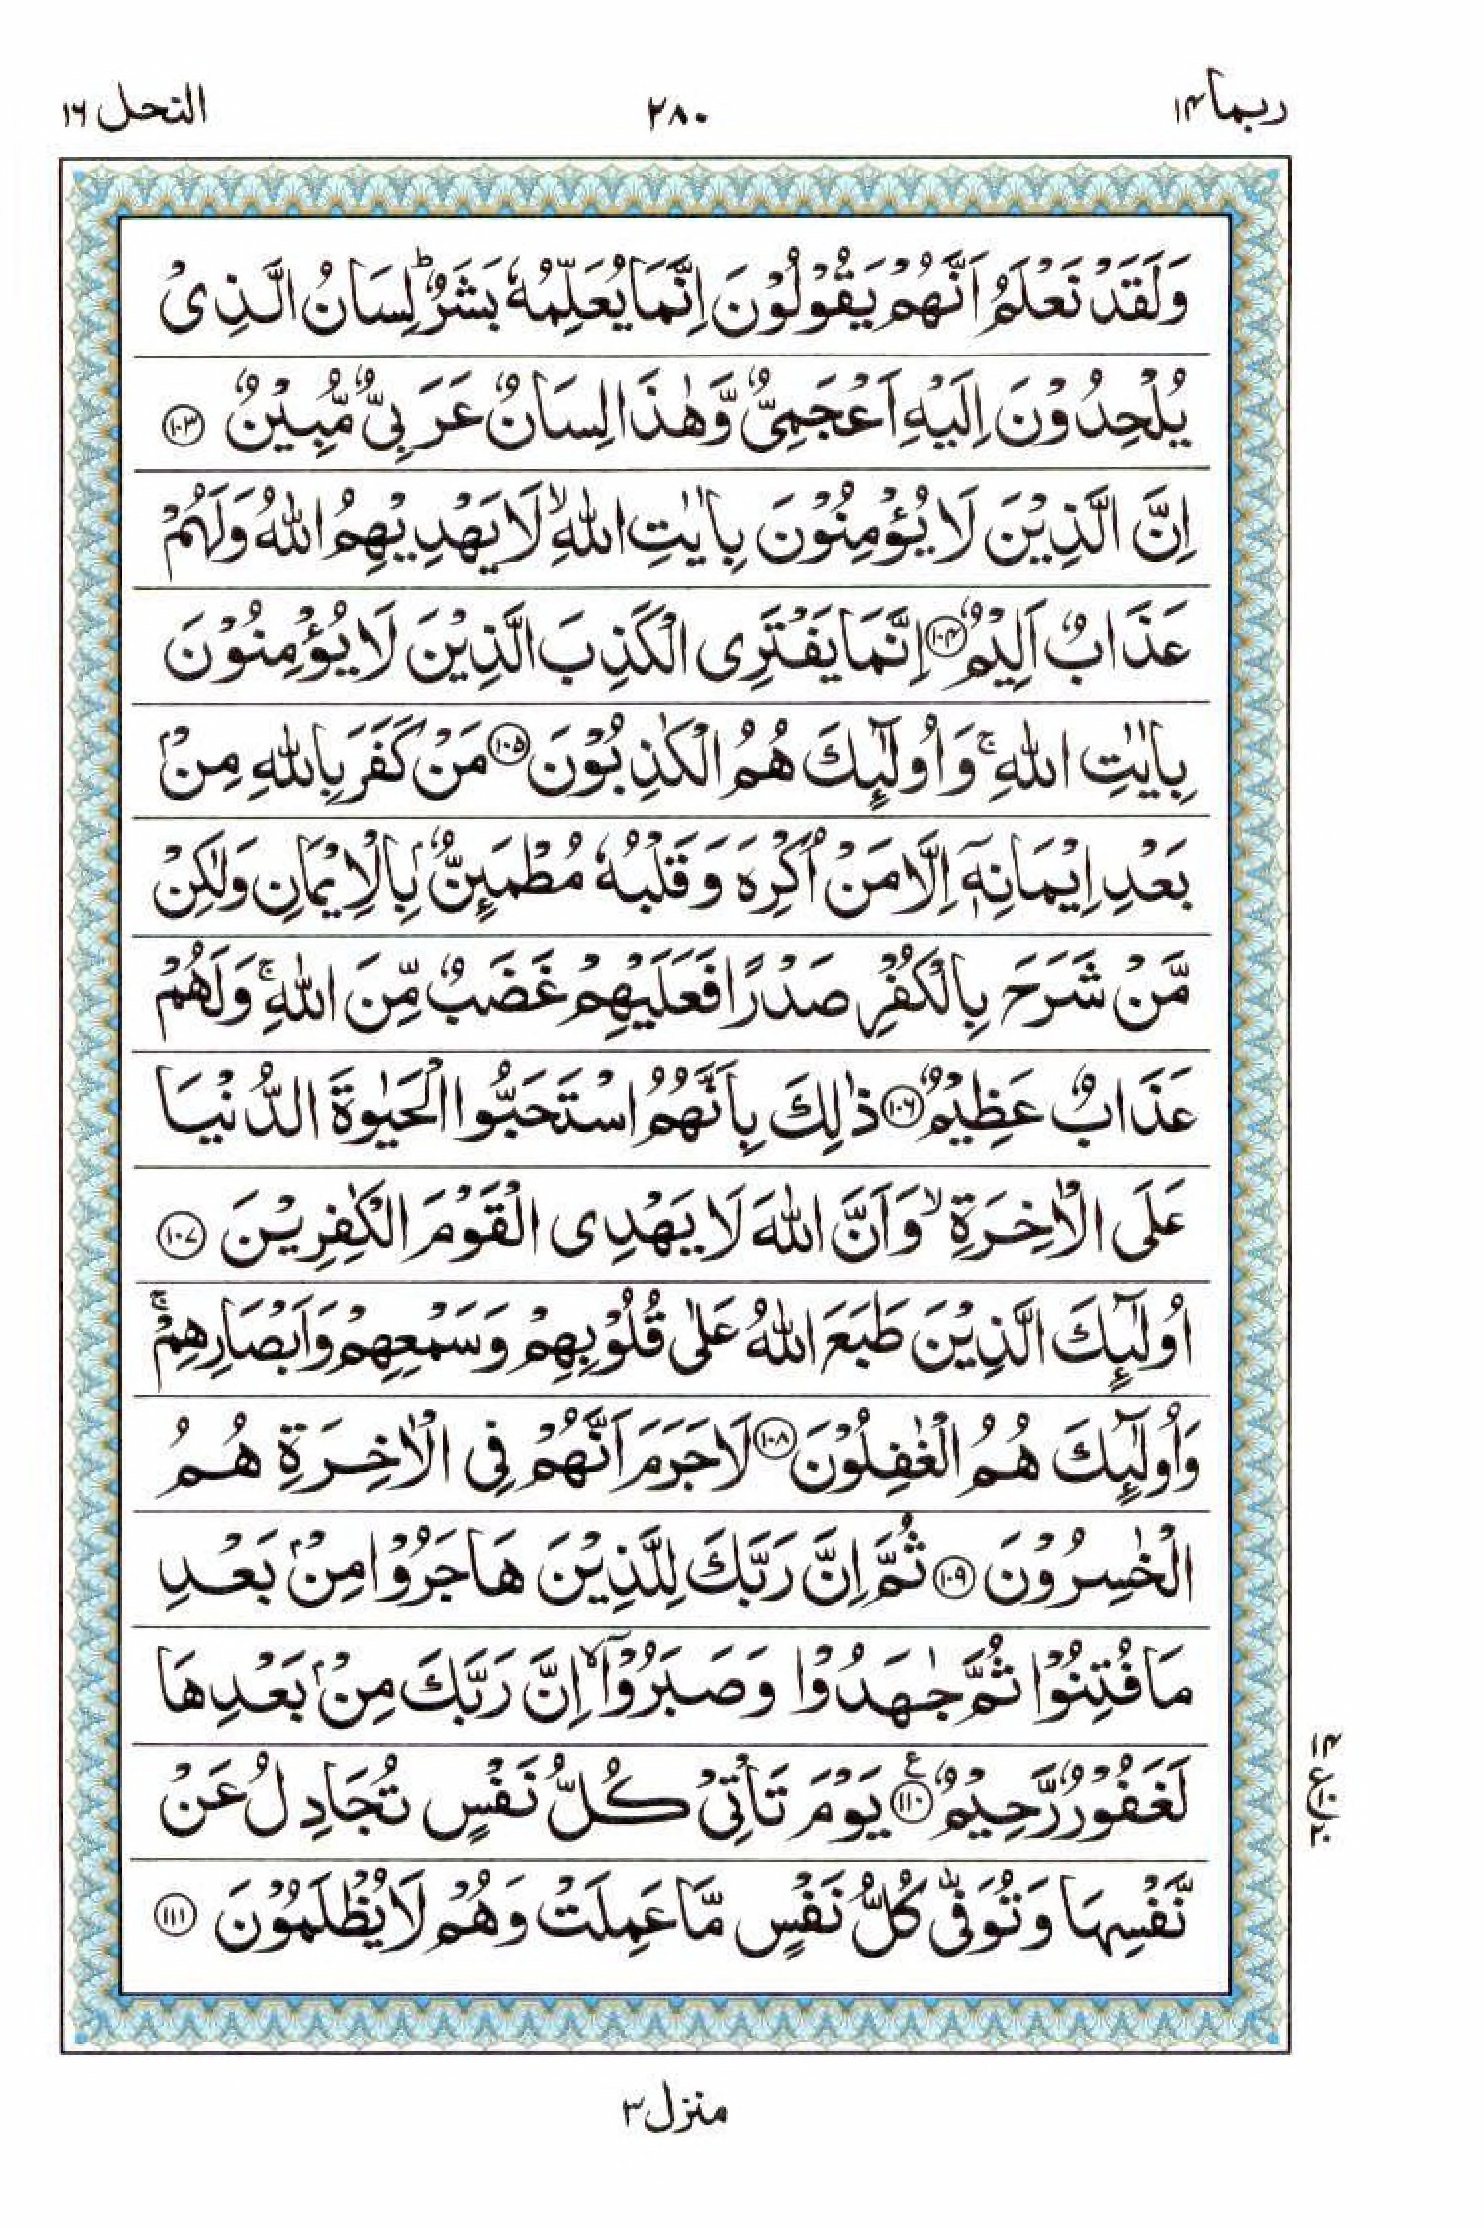 ربما ١٤
٢٨٠
النحل ١٦
وَلَقَدْ نَعْلَمُ اَنَّهُمْ يَقُوْلُوْنَ اِنَّمَا يُعَلِّمُهٗ بَشَرٌ ؕ لِسَانُ الَّذِىْ
يُلْحِدُوْنَ اِلَيْهِ اَعْجَمِىٌّ وَّهٰذَا لِسَانٌ عَرَبِىٌّ مُّبِيْنٌ ﴿١٠٣﴾
اِنَّ الَّذِيْنَ لَا يُؤْمِنُوْنَ بِاٰيٰتِ اللّٰهِ ۙ لَا يَهْدِيْهِمُ اللّٰهُ وَلَهُمْ
عَذَابٌ اَلِيْمٌ ﴿١٠٤﴾ اِنَّمَا يَفْتَرِى الْكَذِبَ الَّذِيْنَ لَا يُؤْمِنُوْنَ
بِاٰيٰتِ اللّٰهِ ۚ وَاُولٰٓئِكَ هُمُ الْكٰذِبُوْنَ ﴿١٠٥﴾ مَنْ كَفَرَ بِاللّٰهِ مِنْۢ
بَعْدِ اِيْمَانِهٖۤ اِلَّا مَنْ اُكْرِهَ وَقَلْبُهٗ مُطْمَئِنٌّۢ بِالْاِيْمَانِ وَلٰكِنْ
مَّنْ شَرَحَ بِالْكُفْرِ صَدْرًا فَعَلَيْهِمْ غَضَبٌ مِّنَ اللّٰهِ ۚ وَلَهُمْ
عَذَابٌ عَظِيْمٌ ﴿١٠٦﴾ ذٰلِكَ بِاَنَّهُمُ اسْتَحَبُّوا الْحَيٰوةَ الدُّنْيَا
عَلَى الْاٰخِرَةِ ۙ وَاَنَّ اللّٰهَ لَا يَهْدِى الْقَوْمَ الْكٰفِرِيْنَ ﴿١٠٧﴾
اُولٰٓئِكَ الَّذِيْنَ طَبَعَ اللّٰهُ عَلٰى قُلُوْبِهِمْ وَسَمْعِهِمْ وَاَبْصَارِهِمْ ۚ
وَاُولٰٓئِكَ هُمُ الْغٰفِلُوْنَ ﴿١٠٨﴾ لَا جَرَمَ اَنَّهُمْ فِى الْاٰخِرَةِ هُمُ
الْخٰسِرُوْنَ ﴿١٠٩﴾ ثُمَّ اِنَّ رَبَّكَ لِلَّذِيْنَ هَاجَرُوْا مِنْۢ بَعْدِ
مَا فُتِنُوْا ثُمَّ جٰهَدُوْا وَصَبَرُوْۤا ۙ اِنَّ رَبَّكَ مِنْۢ بَعْدِهَا
لَغَفُوْرٌ رَّحِيْمٌ ﴿١١٠﴾ ع يَوْمَ تَاْتِىْ كُلُّ نَفْسٍ تُجَادِلُ عَنْ
نَّفْسِهَا وَتُوَفّٰى كُلُّ نَفْسٍ مَّا عَمِلَتْ وَهُمْ لَا يُظْلَمُوْنَ ﴿١١١﴾
١٤
ع ١٠
٢٠
منزل ٣